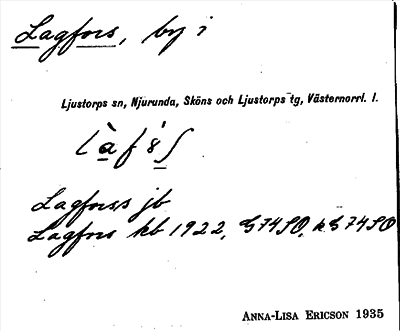 Lagfors, by i
Ljustorps sn, Njurunda, Sköns och Ljustorps tg, Västernorrl. l.
Lagforss jb
Lagfors kb 1922, G74SO, k G74SO
ANNA-LISA ERICSON 1935